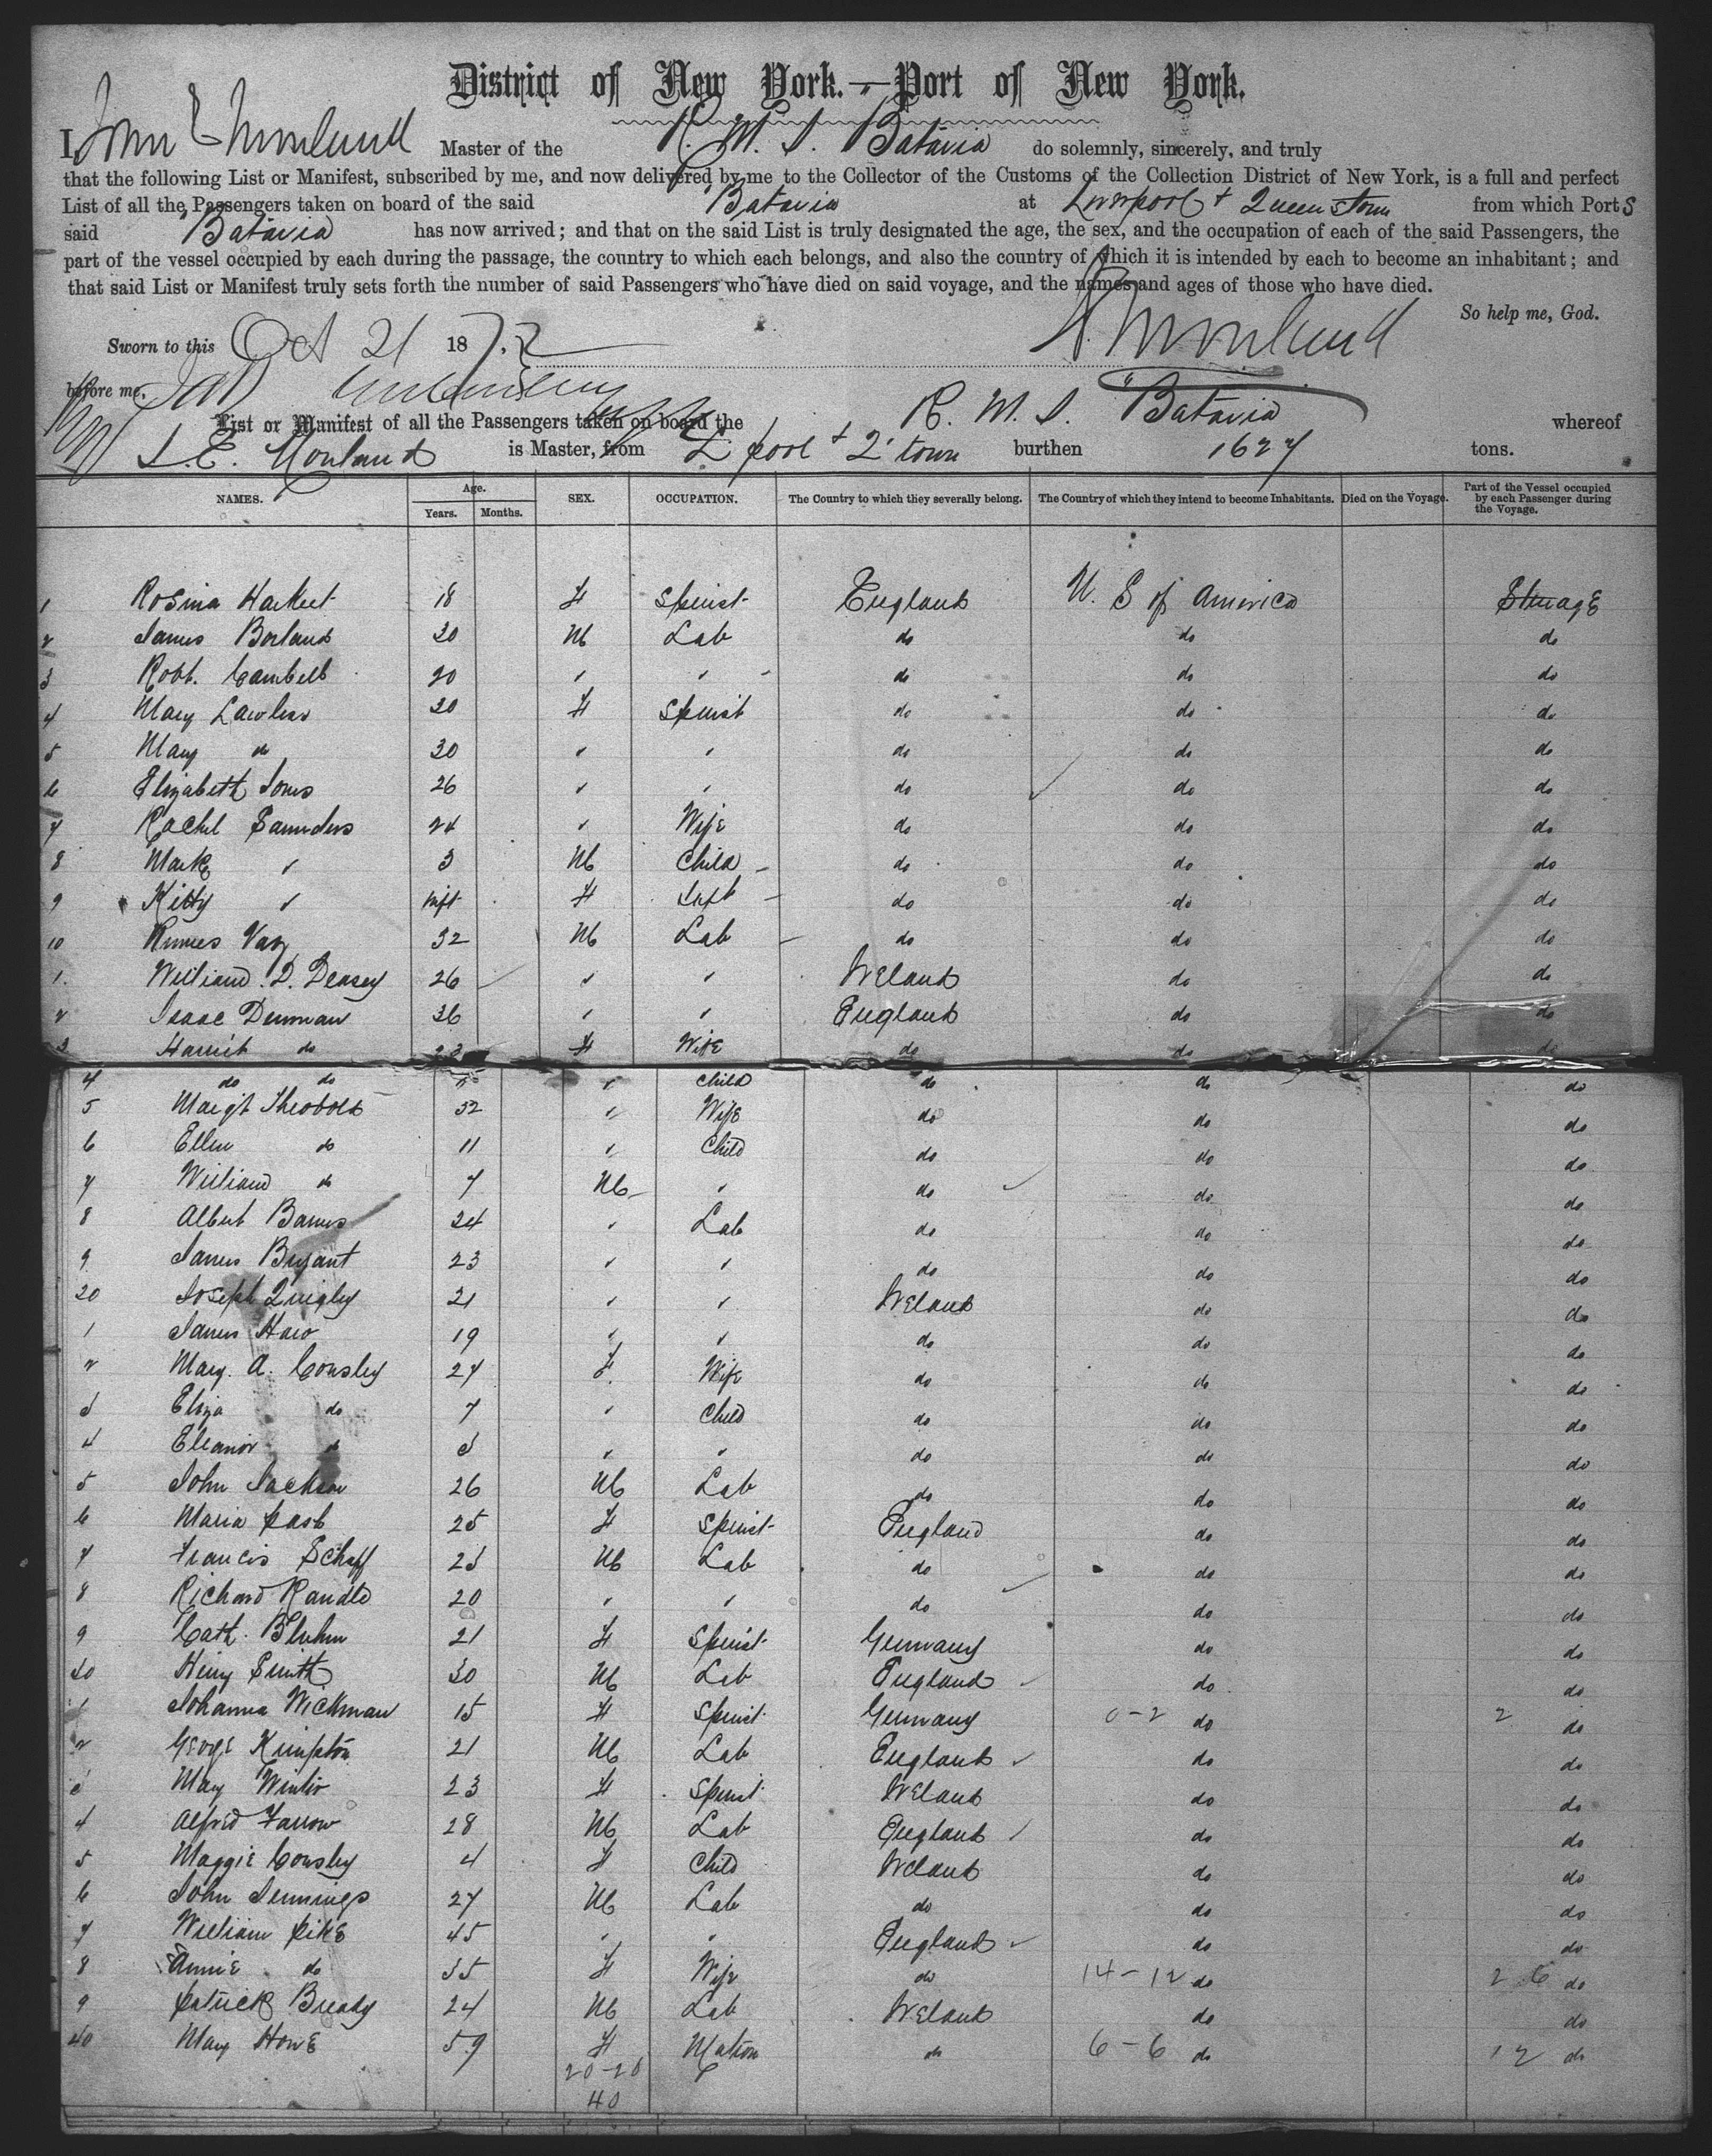 District of New York.—Port of New York.
I, John E Mourland Master of the R. M. S. Batavia do solemnly, sincerely, and truly
that the following List or Manifest, subscribed by me, and now delivered by me to the Collector of the Customs of the Collection District of New York, is a full and perfect
List of all the Passengers taken on board of the said Batavia at Liverpool + Queenstown from which Port s
said Batavia has now arrived; and that on the said List is truly designated the age, the sex, and the occupation of each of the said Passengers, the
part of the vessel occupied by each during the passage, the country to which each belongs, and also the country of which it is intended by each to become an inhabitant; and
that said List or Manifest truly sets forth the number of said Passengers who have died on said voyage, and the names and ages of those who have died.
So help me, God.
Sworn to this Oct 21 1872
before me.
List or Manifest of all the Passengers taken on board the R. M. S. "Batavia whereof
J. E. Mouland is Master, from L'pool + Q'town burthen 1627 tons.
NAMES. Age. Years. Months. SEX. OCCUPATION. The Country to which they severally belong. The Country of which they intend to become Inhabitants. Died on the Voyage. Part of the Vessel occupied by each Passenger during the Voyage.
1 Rosina 18 F Spinst England U. S of America Steerage
2 James Borland 30 M Lab do do do
3 Robt. Cambell 20 " " do do do
4 Mary Lawless 20 F Spinst do do do
5 Mary do 30 " " do do do
6 Elizabeth Jones 26 " " do do do
7 Rachel Saunders 24 " Wife do do do
8 Mark " 3 M Child do do do
9 Kitty " Inft F Inft do do do
10 Vay 32 M Lab do do do
1. William. D. Deasey 26 " " Ireland do do
2 Isaac Denman 36 " " England do do
3 Harriet do F Wife do do do
4 do do " Child do do do
5 Margt Theobold 32 " Wife do do do
6 Ellen do 11 " Child do do do
7 William do 7 M " do do do
8 Albert Barnes 24 " Lab do do do
9 James Bryant 23 " " do do do
20 Joseph Quigley 21 " " Ireland do do
1 James Haw 19 " " do do do
2 Mary. A. Cousley 27 F. Wife do do do
3 Eliza do 7 " Child do do do
4 Eleanor do 3 " " do do do
5 John Jackson 26 M Lab do do do
6 Maria 25 F Spinst England do do
7 Francis Schaff 23 M Lab do do do
8 Richard Randle 20 " " do do do
9 Cath. Bluhm 21 F Spinst Germany do do
30 Henry Smith 30 M Lab England do do
1 Johanna Wickman 15 F Spinst Germany 0-2 do 2 do
2 George Kimpton 21 M Lab England do do
3 Mary Winter 23 F Spinst Ireland do do
4 Alfred Farrow 28 M Lab England do do
5 Maggie Cousley 4 F Child Ireland do do
6 John Jennings 27 M Lab do do do
7 William Pike 45 " " England do do
8 Annie do 35 F Wife do 14-12 do 26 do
9 Patrick Bready 24 M Lab Ireland do do
40 Mary Howe 59 F Matron do 6-6 do 12 do
20-20
40